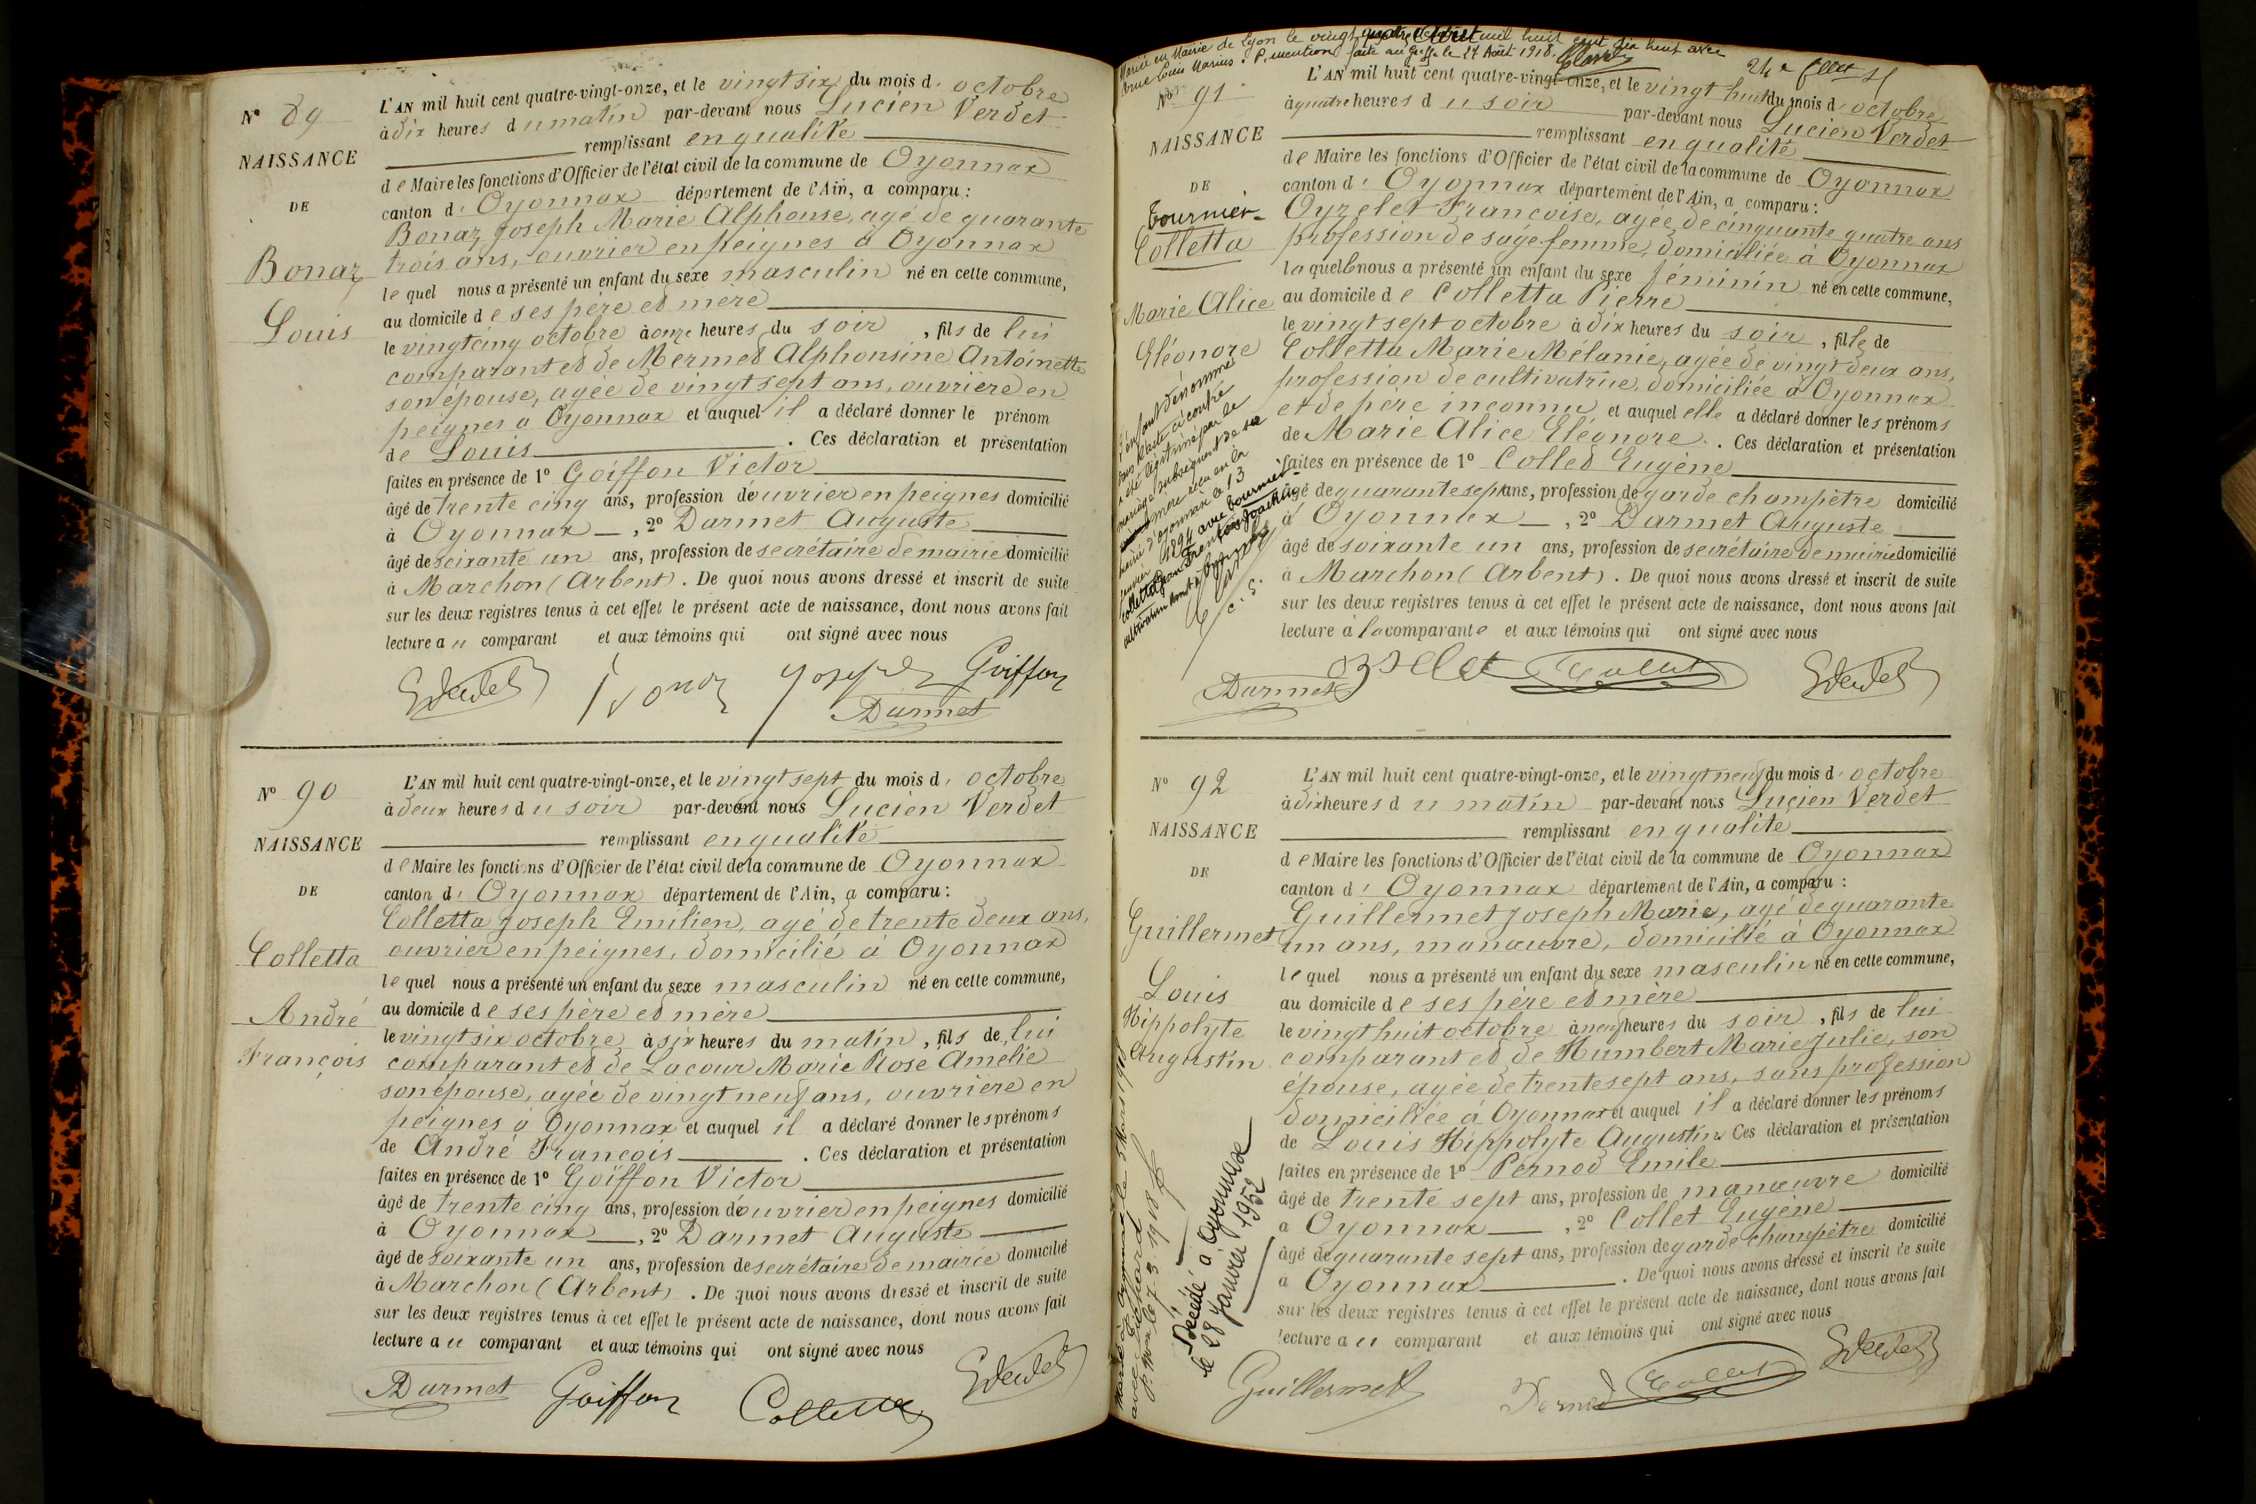 N° 89
NAISSANCE
DE
Bonaz
Louis
L'AN mil huit cent quatre-vingt-onze, et le vingt six du mois d' octobre
à dix heures du matin par-devant nous Lucien Verdet
remplissant en qualité
de Maire les fonctions d'Officier de l'état civil de la commune de Oyonnax
canton d' Oyonnax département de l'Ain, a comparu :
Bonaz Joseph Marie Alphonse, agé de quarante
trois ans, ouvrier en peignes à Oyonnax
lequel nous a présenté un enfant du sexe masculin né en cette commune,
au domicile de ses père et mère
le vingt cinq octobre à onze heures du soir, fils de lui
comparant et de Mermet Alphonsine Antoinette
son épouse, agée de vingt sept ans, ouvrière en
peignes à Oyonnax et auquel il a déclaré donner le prénom
de Louis. Ces déclaration et présentation
faites en présence de 1° Goiffon Victor
âgé de trente cinq ans, profession d'ouvrier en peignes domicilié
à Oyonnax, 2° Darmet Auguste
âgé de soixante un ans, profession de secrétaire de mairie domicilié
à Marchon (Arbent). De quoi nous avons dressé et inscrit de suite
sur les deux registres tenus à cet effet le présent acte de naissance, dont nous avons fait
lecture au comparant et aux témoins qui ont signé avec nous
Verdet Bonaz Joseph Goiffon
Darmet
N° 90
NAISSANCE
DE
Colletta
André
François
L'AN mil huit cent quatre-vingt-onze, et le vingt sept du mois d' octobre
à deux heures du soir par-devant nous Lucien Verdet
remplissant en qualité
de Maire les fonctions d'Officier de l'état civil de la commune de Oyonnax
canton d' Oyonnax département de l'Ain, a comparu :
Colletta Joseph Emilien, agé de trente deux ans,
ouvrier en peignes, domicilié à Oyonnax
lequel nous a présenté un enfant du sexe masculin né en cette commune,
au domicile de ses père et mère
le vingt six octobre à six heures du matin, fils de lui
comparant et de Lacour Marie Rose Amélie
son épouse, agée de vingt neuf ans, ouvrière en
peignes à Oyonnax et auquel il a déclaré donner les prénoms
de André François. Ces déclaration et présentation
faites en présence de 1° Goiffon Victor
âgé de trente cinq ans, profession d'ouvrier en peignes domicilié
à Oyonnax, 2° Darmet Auguste
âgé de soixante un ans, profession de secrétaire de mairie domicilié
à Marchon (Arbent). De quoi nous avons dressé et inscrit de suite
sur les deux registres tenus à cet effet le présent acte de naissance, dont nous avons fait
lecture au comparant et aux témoins qui ont signé avec nous
Darmet Goiffon Colletta Verdet
Mariée en Mairie de Lyon le vingt quatre Août mil huit cent dix huit avec
Louis Marius. P. mention faite au Greffe le 27 Août 1918.
N° 91
NAISSANCE
DE
Tournier
Colletta
Marie Alice
Eléonore
L'enfant dénommé
dans l'acte ci contre
a été légitimé par le
mariage subséquent de sa
mère reçu en la
mairie d'Oyonnax le 13
1894 avec Tournier
L'AN mil huit cent quatre-vingt-onze, et le vingt huit du mois d' octobre
à quatre heures du soir par-devant nous Lucien Verdet
remplissant en qualité
de Maire les fonctions d'Officier de l'état civil de la commune de Oyonnax
canton d' Oyonnax département de l'Ain, a comparu :
Oyselet Francoise, agée de cinquante quatre ans
profession de sage femme, domiciliée à Oyonnax
laquelle nous a présenté un enfant du sexe féminin né en cette commune,
au domicile de Colletta Pierre
le vingt sept octobre à dix heures du soir, fille de
Colletta Marie Mélanie, agée de vingt deux ans,
profession de cultivatrice, domiciliée à Oyonnax
et de père inconnu et auquel elle a déclaré donner les prénoms
de Marie Alice Eléonore. Ces déclaration et présentation
faites en présence de 1° Collet Eugène
âgé de quarante sept ans, profession de garde champêtre domicilié
à Oyonnax, 2° Darmet Auguste
âgé de soixante un ans, profession de secrétaire de mairie domicilié
à Marchon (Arbent). De quoi nous avons dressé et inscrit de suite
sur les deux registres tenus à cet effet le présent acte de naissance, dont nous avons fait
lecture à la comparante et aux témoins qui ont signé avec nous
Darmet Collet Verdet
N° 92
NAISSANCE
DE
Guillermet
Louis
Hippolyte
Augustin
Marié à Oyonnax le 5 Mars 1918
Décédé à Oyonnax
le 28 Janvier 1952
L'AN mil huit cent quatre-vingt-onze, et le vingt neuf du mois d' octobre
à dix heures du matin par-devant nous Lucien Verdet
remplissant en qualité
de Maire les fonctions d'Officier de l'état civil de la commune de Oyonnax
canton d' Oyonnax département de l'Ain, a comparu :
Guillermet Joseph Marie, agé de quarante
un ans, manœuvre, domicilié à Oyonnax
lequel nous a présenté un enfant du sexe masculin né en cette commune,
au domicile de ses père et mère
le vingt huit octobre à neuf heures du soir, fils de lui
comparant et de Humbert Marie Julie, son
épouse, agée de trente sept ans, sans profession
domiciliée à Oyonnax et auquel il a déclaré donner les prénoms
de Louis Hippolyte Augustin Ces déclaration et présentation
faites en présence de 1° Pernod Emile
âgé de trente sept ans, profession de manœuvre domicilié
à Oyonnax, 2° Collet Eugène
âgé de quarante sept ans, profession de garde champêtre domicilié
à Oyonnax. De quoi nous avons dressé et inscrit de suite
sur les deux registres tenus à cet effet le présent acte de naissance, dont nous avons fait
lecture au comparant et aux témoins qui ont signé avec nous
Guillermet Pernod Collet Verdet